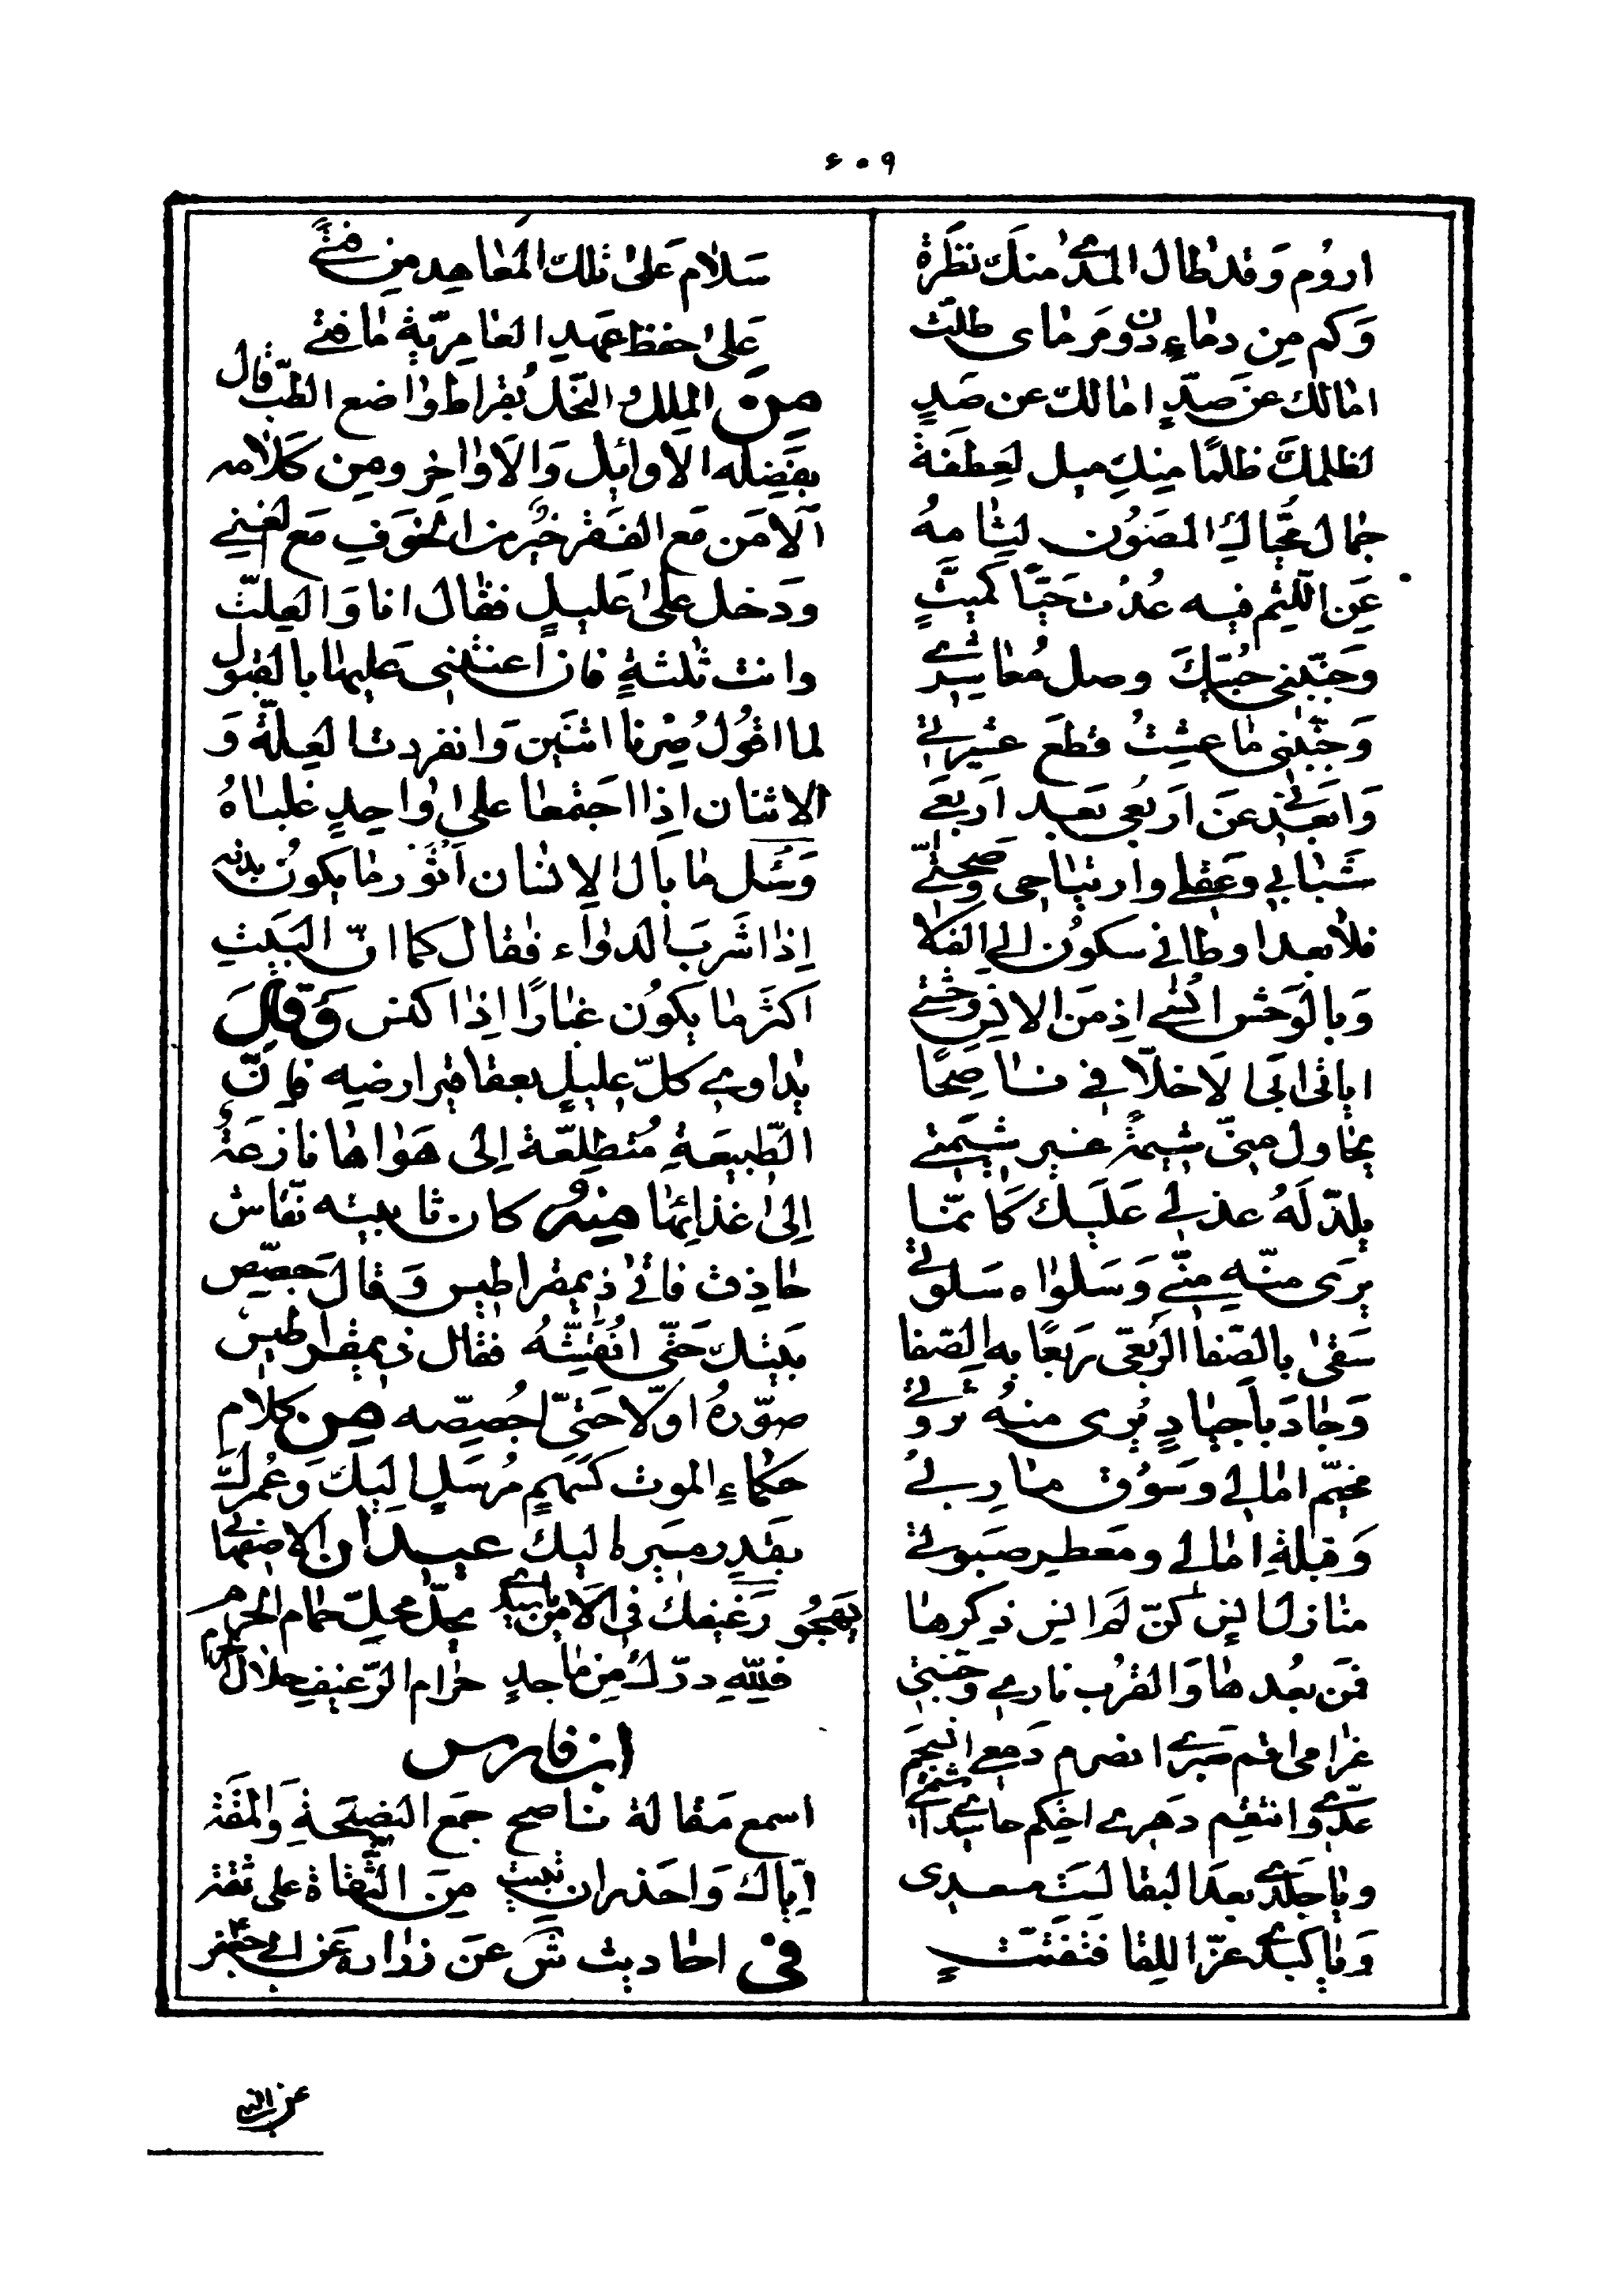 ۶۰۹
اروم وقد طال المدى منك نظرة
وكم من دماء دون مرماى طلت
امالك عن صد امالك عن صد
لظلمك ظلما منك ميل لعطفة
جمال محياك المصون لثامه
عن اللثم فيه عدت حيا كميت
وحببنى حبيك وصل معاشرى
وجنبنى ما عشت قطع عشيرتى
وابعدنى عن اربعى بعد اربع
شبابى وعقلى وارتياحى وصحتى
فلا بعد اوطانى سكون الى الفلا
وبالوحش انسى اذ من الانس وحشتى
اباتى ابى لا خلا فى ناصحا
يحاول منى شيمة غير شيمتى
يلذ له عذلى عليك كانما
يرى منه منى وسلواه سلوتى
سقى بالصفا الربعى ربعا به الصفا
وجاد باجياد ثرى منه ثروتى
مخيم امالى وسوق ماربى
وقبلة امالى ومعطير صبوتى
منازل انس كن لم انس ذكرها
فمن بعدها والقرب نارى وجنتى
غرامى اقم صبرى انصرم دمعى انسجم
عدوى انتقم دهرى احتكم حاسدى اشمت
ويا جلدى بعد البقا لست مسعدى
ويا كبدى عز اللقا فتفتت
سلام على تلك المعاهد من فتى
على حفظ عهد العامرية ما فتى
من الملل والنحل بقراط واضع الطب قال
بفضله الاوايل والاواخر ومن كلامه
الامن مع الفقر خير من الخوف مع لغنى
ودخل على عليل فقال انا والعلت
وانت ثلثة فان اعنتنى عليها بالقبول
لما اقول صرنا اثنين وانفردت العلة و
الاثنان اذا اجتمعا على واحد غلباه
وسئل ما بال الانسان اثور ما يكون بدنه
اذا شرب الدواء فقال كما ان البيت
اكثر ما يكون غبارا اذا كنس وقال
يداوى كل عليل بعقاقير ارضه فان
الطبيعة متطلعة الى هواها نازعة
الى غذائها منه كان ثابسته نقاش
حاذق فاتى ذيمقراطيس وقال جصص
بيتك حتى انقشه فقال ذيمقراطيس
صوره اولا حتى اجصصه من كلام
حكماء الموت كسهم مرسل اليك وعمرك
بقدر مسيره اليك عبدان الاصفهانى
يهجو رغيفك فى الامن يا سيدى يحل محل حمام الحرم
فلله درك من ماجد حرام الرغيف حلال الحرم
ابن فارس
اسمع مقالة ناصح جمع النصيحة والمقة
اياك واحذر ان تبيت من الثقاة على ثقة
فى احاديث ش عن زرارة عن ابى جعفر